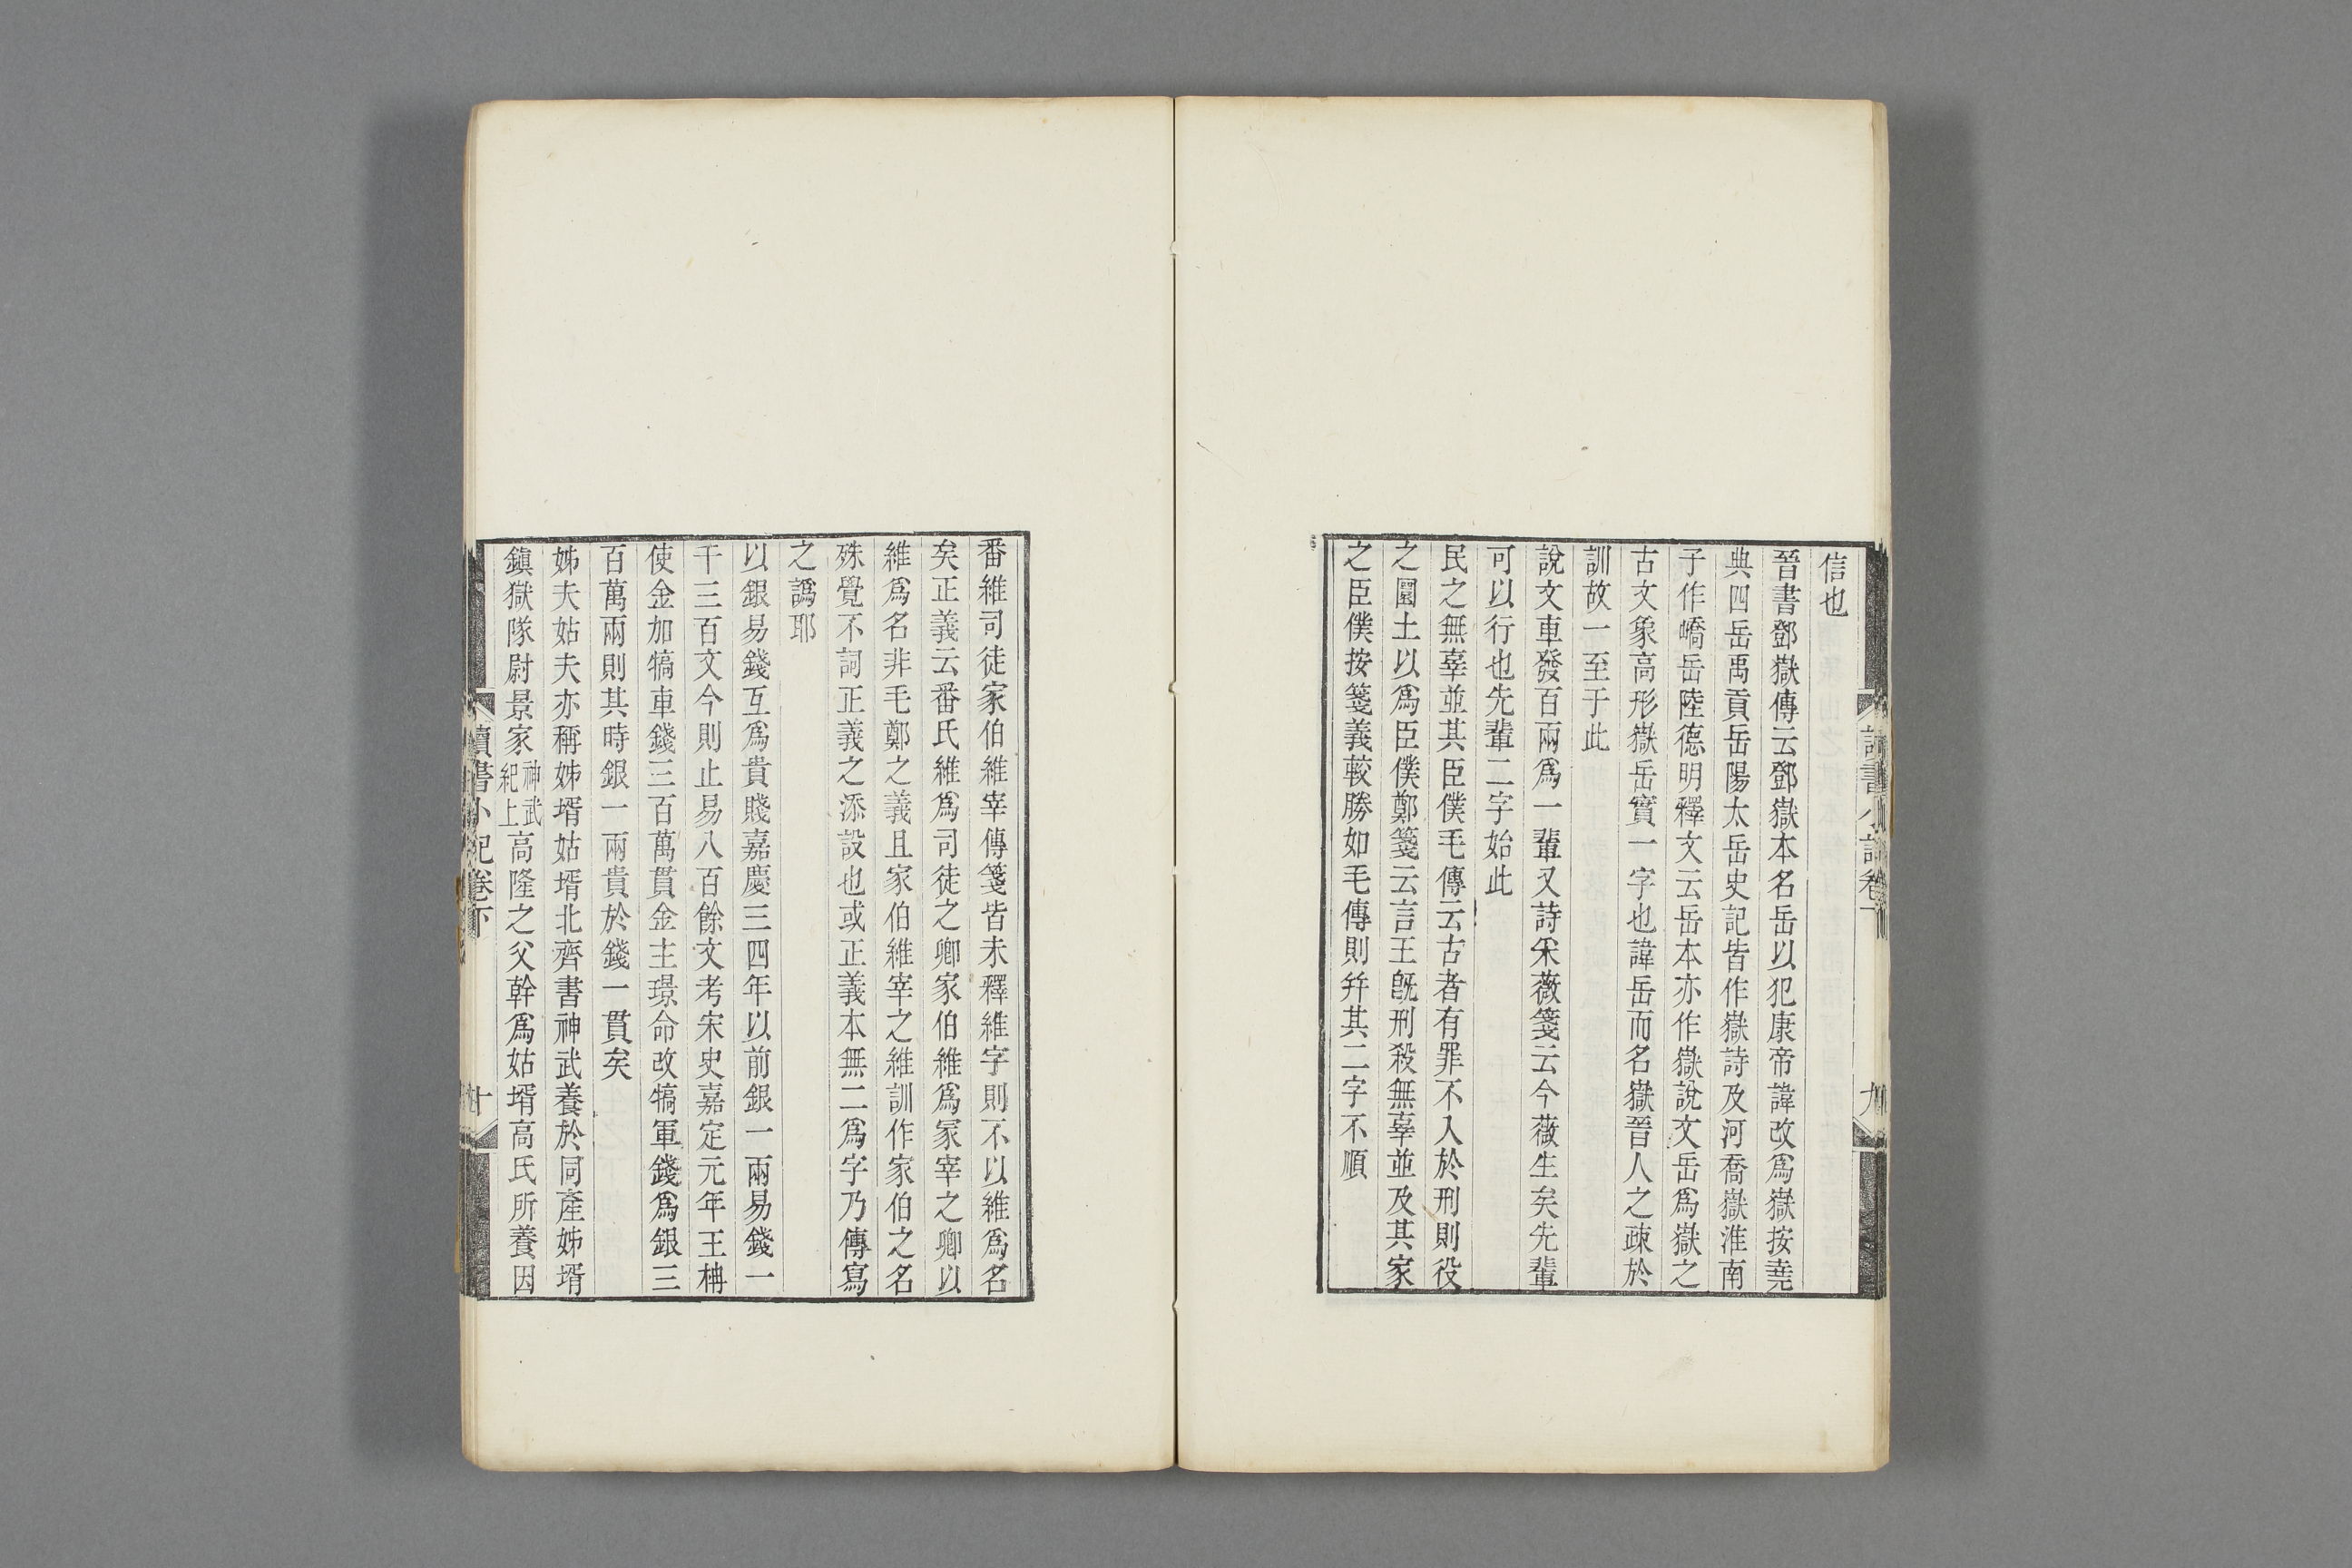 信也
晉書鄧嶽傳云鄧嶽本名岳以犯康帝諱改爲嶽按堯
典四岳禹貢岳陽太岳史記皆作嶽詩及河喬嶽淮南
子作嶠岳陸德明釋文云岳本亦作嶽說文岳爲嶽之
古文象高形嶽岳實一字也諱岳而名嶽晉人之疎於
訓故一至于此
說文車發百兩爲一輩又詩采薇箋云今薇生矣先輩
可以行也先輩二字始此
民之無辜並其臣僕毛傳云古者有罪不入於刑則役
之圜土以爲臣僕鄭箋云言王旣刑殺無辜並及其家
之臣僕按箋義較勝如毛傳則幷其二字不順
番維司徒家伯維宰傳箋皆未釋維字則不以維爲名
矣正義云番氏維爲司徒之卿家伯維爲冢宰之卿以
維爲名非毛鄭之義且家伯維宰之維訓作家伯之名
殊覺不詞正義之添設也或正義本無二爲字乃傳寫
之譌耶
以銀易錢互爲貴賤嘉慶三四年以前銀一兩易錢一
千三百文今則止易八百餘文考宋史嘉定元年王柟
使金加犒車錢三百萬貫金主璟命改犒軍錢爲銀三
百萬兩則其時銀一兩貴於錢一貫矣
姊夫姑夫亦稱姊壻姑壻北齊書神武養於同產姊壻
鎮獄隊尉景家神武紀上高隆之父幹爲姑壻高氏所養因
讀書小記卷下
十